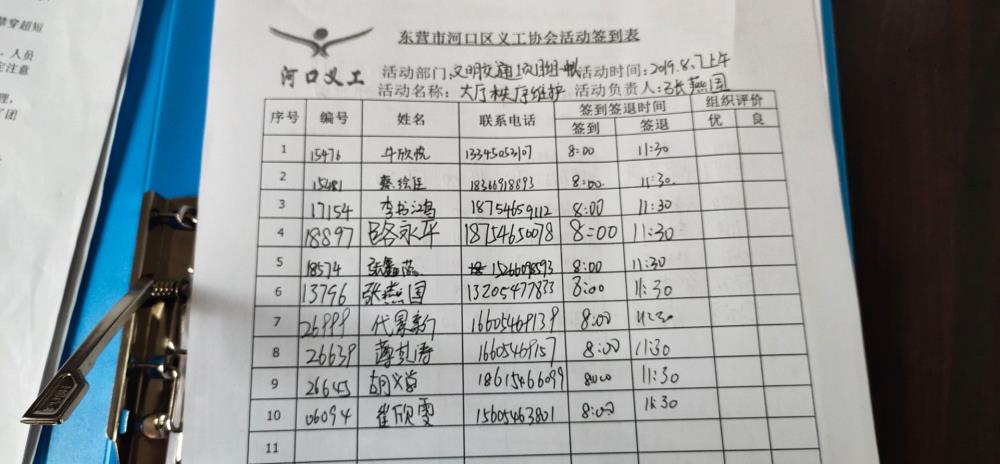 禁穿超短
、人员
定注意
理,
了团
河口义工
东营市河口区义工协会活动签到表
活动部门:文明交通项目组 活动时间:2019.8.7上午
活动名称:大厅秩序维护 活动负责人:张燕国
序号 编号 姓名 联系电话 签到签退时间 组织评价
签到 签退 优 良
1 15476 牛欣悦 13345053107 8:00 11:30
2 15481 18366918893 8:00 11:30
3 17154 李书江鸿 18754659112 8:00 11:30
4 18897 路永平 18754650078 8:00 11:30
5 18574 15266098593 8:00 11:30
6 13796 张燕国 13205477833 8:00 11:30
7 26999 代景新 16605469139 8:00 11:30
8 26639 薄乾涛 16605469157 8:00 11:30
9 26645 胡义堂 18615466099 8:00 11:30
10 06094 崔欣雯 15605463801 8:00 11:30
11